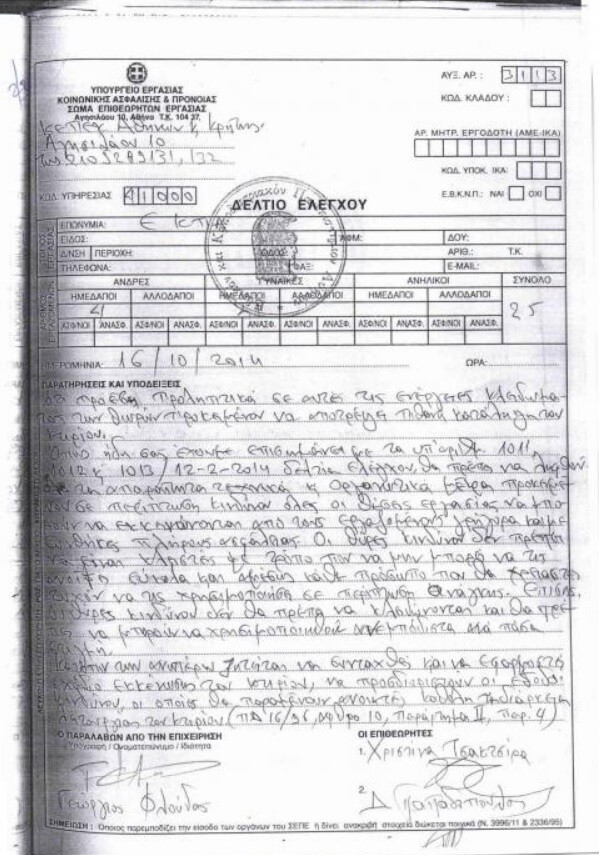 ΥΠΟΥΡΓΕΙΟ ΕΡΓΑΣΙΑΣ
ΚΟΙΝΩΝΙΚΗΣ ΑΣΦΑΛΙΣΗΣ & ΠΡΟΝΟΙΑΣ
ΣΩΜΑ ΕΠΙΘΕΩΡΗΤΩΝ ΕΡΓΑΣΙΑΣ
Αγησιλάου 10, Αθήνα Τ.Κ. 104 37,
Αθηνών κ Κρήτης
Αγησιλάου 10
ΑΥΞ. ΑΡ. : 3113
ΚΩΔ. ΚΛΑΔΟΥ :
ΑΡ. ΜΗΤΡ. ΕΡΓΟΔΟΤΗ (ΑΜΕ-ΙΚΑ)
ΚΩΔ. ΥΠΟΚ. ΙΚΑ:
ΚΩΔ. ΥΠΗΡΕΣΙΑΣ 41000
Ε.Β.Κ.Ν.Π.: ΝΑΙ ΟΧΙ
ΔΕΛΤΙΟ ΕΛΕΓΧΟΥ
ΕΠΩΝΥΜΙΑ:
ΕΙΔΟΣ: ΑΦΜ: ΔΟΥ:
Δ/ΝΣΗ ΠΕΡΙΟΧΗ: ΟΔΟΣ ΑΡΙΘ.: Τ.Κ.
ΤΗΛΕΦΩΝΑ: ΦΑΞ: E-MAIL:
ΑΝΔΡΕΣ ΓΥΝΑΙΚΕΣ ΑΝΗΛΙΚΟΙ ΣΥΝΟΛΟ
ΗΜΕΔΑΠΟΙ ΑΛΛΟΔΑΠΟΙ ΗΜΕΔΑΠΟΙ ΑΛΛΟΔΑΠΟΙ ΗΜΕΔΑΠΟΙ ΑΛΛΟΔΑΠΟΙ
25
ΑΣΦ/ΝΟΙ ΑΝΑΣΦ. ΑΣΦ/ΝΟΙ ΑΝΑΣΦ. ΑΣΦ/ΝΟΙ ΑΝΑΣΦ. ΑΣΦ/ΝΟΙ ΑΝΑΣΦ. ΑΣΦ/ΝΟΙ ΑΝΑΣΦ. ΑΣΦ/ΝΟΙ ΑΝΑΣΦ.
ΗΜΕΡΟΜΗΝΙΑ: 16/10/2014 ΩΡΑ:
ΠΑΡΑΤΗΡΗΣΕΙΣ ΚΑΙ ΥΠΟΔΕΙΞΕΙΣ
προέβη προληπτικά σε αυτές τις ενέργειες κλειδώμα-
τος των θυρών προκειμένου να αποτρέψει πιθανή κατάληψη του
κτιρίου.
Όπως ήδη σας έχουμε επισημάνει με τα υπ' αριθμ 1011,
1012 κ 1013/12-2-2014 δελτία ελέγχου, θα πρέπει να ληφθούν
τα απαραίτητα τεχνικά κ οργανωτικά μέτρα προκειμέ-
νου σε περίπτωση κινδύνου όλες οι θέσεις εργασίας να μπο-
ρούν να εκκενώνονται από τους εργαζομένους γρήγορα και με
συνθήκες πλήρους ασφάλειας. Οι θύρες κινδύνου δεν πρέπει
να είναι κλειστές με τρόπο που να μην μπορεί να τις
ανοίξει εύκολα και αμέσως κάθε πρόσωπο που θα χρειαστεί
τυχόν να τις χρησιμοποιήσει σε περίπτωση ανάγκης. Επίσης,
οι θύρες κινδύνου δεν θα πρέπει να κλειδώνονται και θα πρέ-
πει να μπορούν να χρησιμοποιηθούν ανεμπόδιστα ανά πάσα
στιγμή.
Κατόπιν των ανωτέρω ζητείται να συνταχθεί και να εφαρμοστεί
σχέδιο εκκένωσης του κτιρίου, να προσδιοριστούν οι έξοδοι
κινδύνου, οι οποίες θα παραμένουν ανοικτές καθ' όλη τη διάρκεια
λειτουργίας του κτιρίου (ΠΔ 16/96, άρθρο 10, Παράρτημα ΙΙ, παρ. 4)
Ο ΠΑΡΑΛΑΒΩΝ ΑΠΟ ΤΗΝ ΕΠΙΧΕΙΡΗΣΗ ΟΙ ΕΠΙΘΕΩΡΗΤΕΣ
Υπογραφή / Ονοματεπώνυμο / Ιδιότητα
1. Χριστίνα Τσακτσίρα
Γεώργιος Φλούδας
2. Δ Παπαδόπουλος
ΣΗΜΕΙΩΣΗ : Όποιος παρεμποδίζει την είσοδο των οργάνων του ΣΕΠΕ ή δίνει ανακριβή στοιχεία διώκεται ποινικά (Ν. 3996/11 & 2336/95)